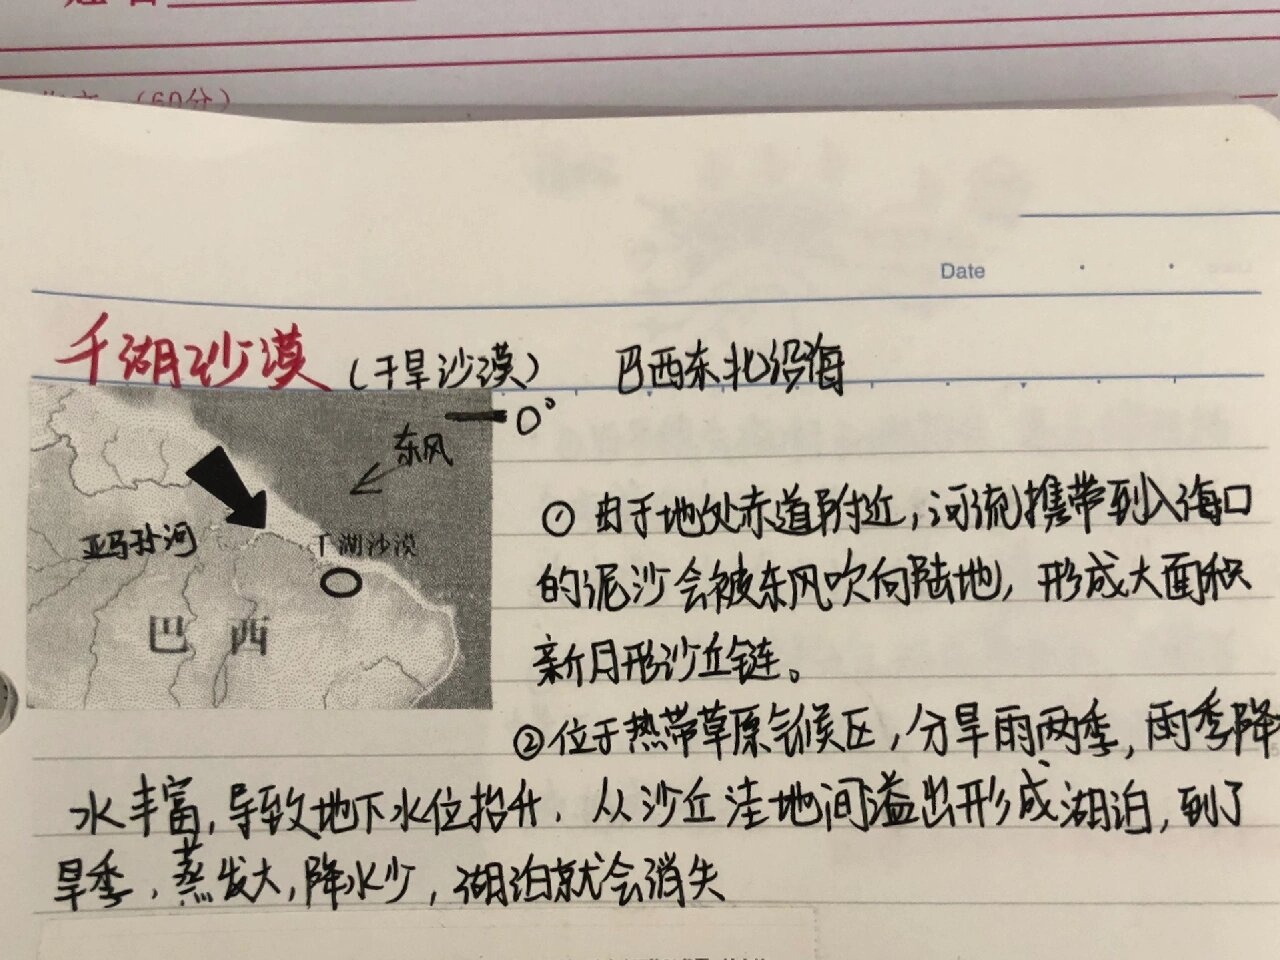 (60分)
Date
千湖沙漠 (干旱沙漠) 巴西东北沿海
0°
东风
亚马孙河
千湖沙漠
巴西
① 由于地处赤道附近,河流携带到入海口
的泥沙会被东风吹向陆地,形成大面积
新月形沙丘链。
②位于热带草原气候区,分旱雨两季,雨季降
水丰富,导致地下水位抬升,从沙丘洼地间溢出形成湖泊,到了
旱季,蒸发大,降水少,湖泊就会消失